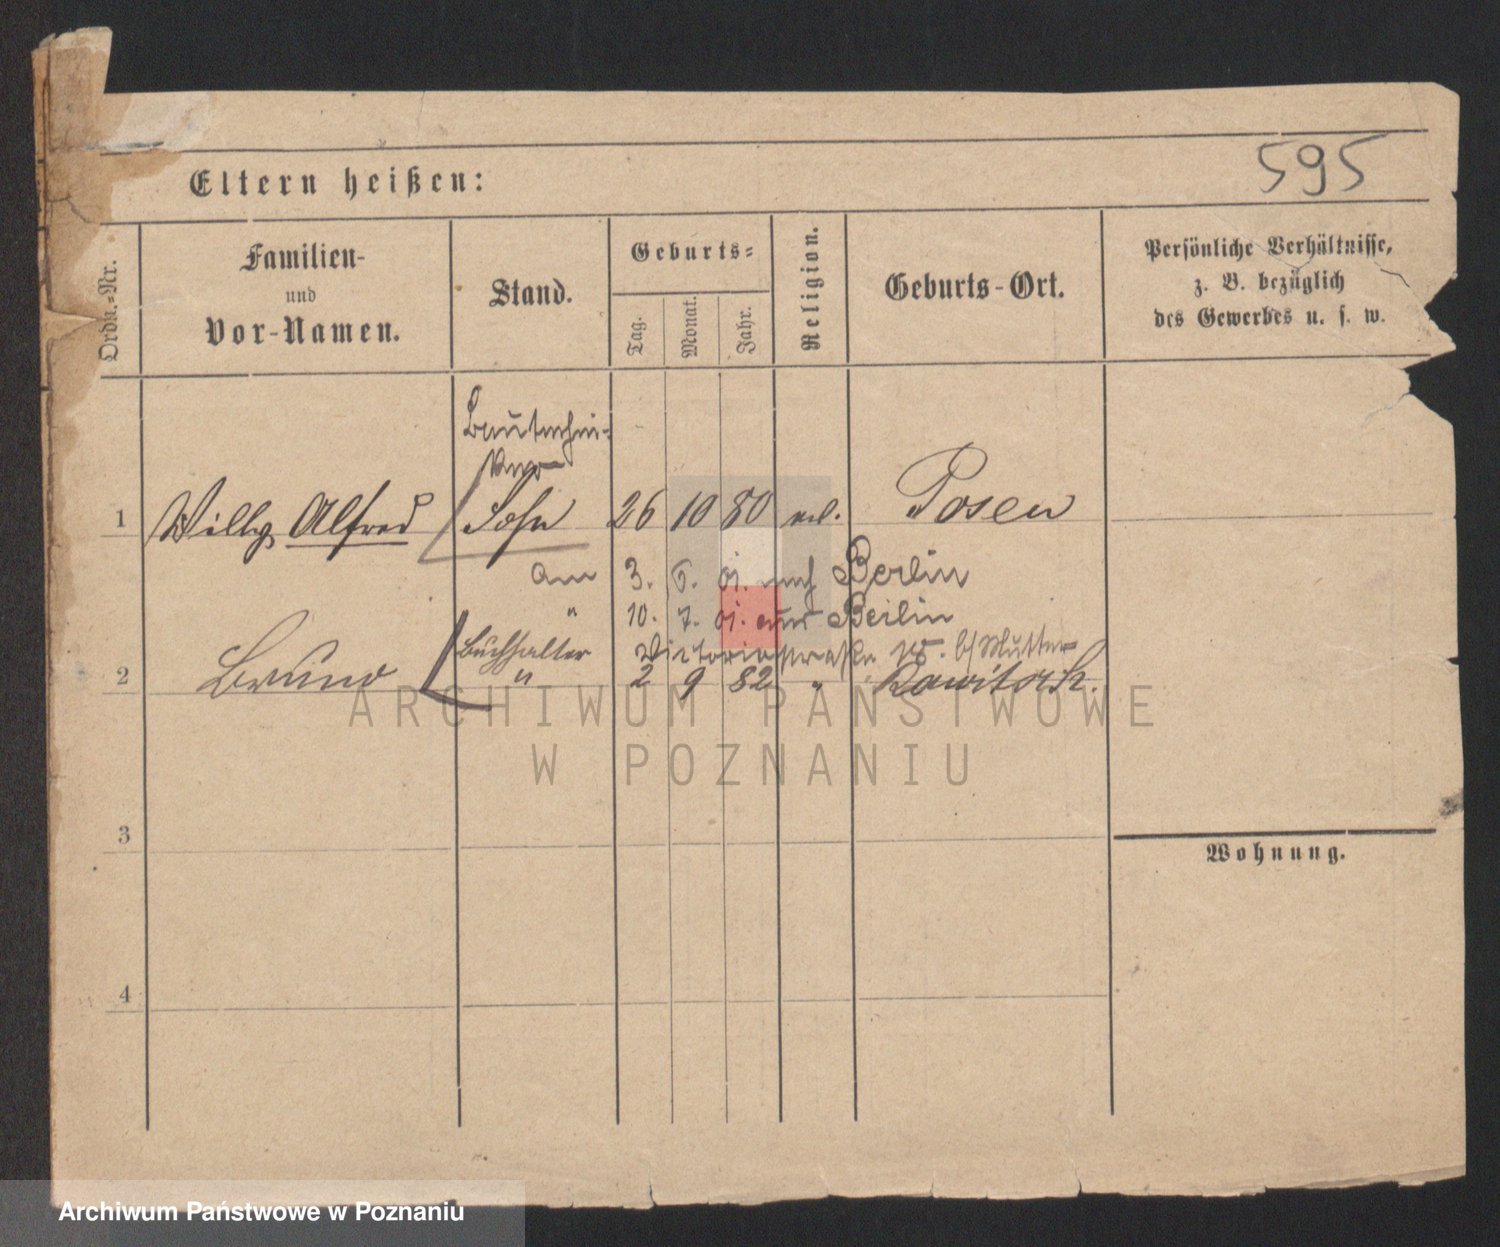 595
Eltern heißen:
Ordn.-Nr.
Familien-
und
Vor-Namen.
Stand.
Geburts-
Tag.
Monat.
Jahr.
Religion.
Geburts-Ort.
Persönliche Verhältnisse,
z. B. bezüglich
des Gewerbes u. s. w.
Bautechni-
ker
1 Willy Alfred Sohn 26 10 80 ev. Posen
am 3. 5. 01. nach Berlin
" 10. 7. 01. aus Berlin
Buchhalter Victoriastraße b/ Mutter
2 Bruno " 2 9 82 " Rawitsch.
3
Wohnung.
4
ARCHIWUM PAŃSTWOWE
W POZNANIU
Archiwum Państwowe w Poznaniu